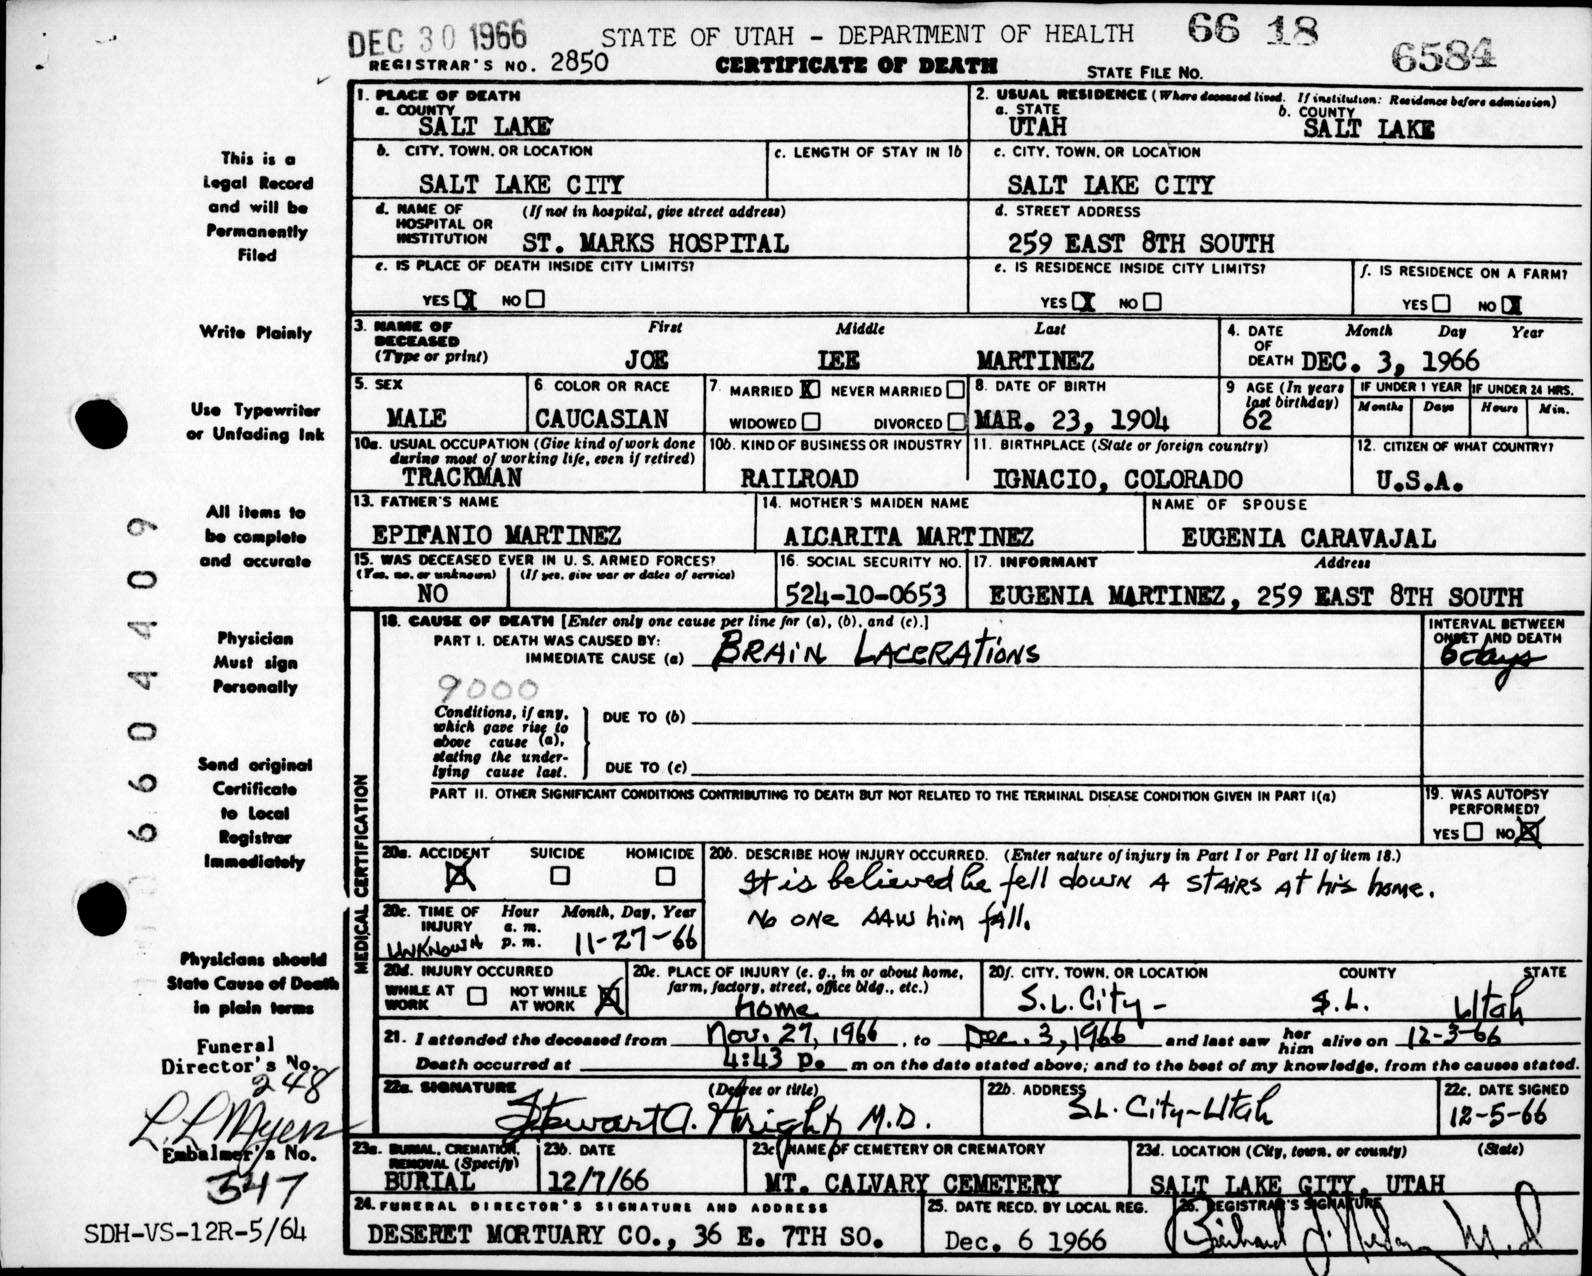 DEC 30 1966 STATE OF UTAH - DEPARTMENT OF HEALTH 66 18 6584
REGISTRAR'S NO. 2850 CERTIFICATE OF DEATH STATE FILE NO.
This is a
Legal Record
and will be
Permanently
Filed
Write Plainly
Use Typewriter
or Unfading Ink
All items to
be complete
and accurate
Physician
Must sign
Personally
Send original
Certificate
to Local
Registrar
Immediately
Physicians should
State Cause of Death
in plain terms
Funeral
Director's No.
248
L. L. Myers
Embalmer's No.
347
SDH-VS-12R-5/64
6604409
1. PLACE OF DEATH
a. COUNTY
SALT LAKE
2. USUAL RESIDENCE (Where deceased lived. If institution: Residence before admission)
a. STATE b. COUNTY
UTAH SALT LAKE
b. CITY, TOWN, OR LOCATION
SALT LAKE CITY
c. LENGTH OF STAY IN 1b
c. CITY, TOWN, OR LOCATION
SALT LAKE CITY
d. NAME OF (If not in hospital, give street address)
HOSPITAL OR
INSTITUTION ST. MARKS HOSPITAL
d. STREET ADDRESS
259 EAST 8TH SOUTH
e. IS PLACE OF DEATH INSIDE CITY LIMITS?
YES X NO
e. IS RESIDENCE INSIDE CITY LIMITS?
YES X NO
f. IS RESIDENCE ON A FARM?
YES NO X
3. NAME OF First Middle Last
DECEASED
(Type or print) JOE LEE MARTINEZ
4. DATE Month Day Year
OF
DEATH DEC. 3, 1966
5. SEX
MALE
6 COLOR OR RACE
CAUCASIAN
7. MARRIED X NEVER MARRIED
WIDOWED DIVORCED
8. DATE OF BIRTH
MAR. 23, 1904
9 AGE (In years
last birthday)
62
IF UNDER 1 YEAR IF UNDER 24 HRS.
Months Days Hours Min.
10a. USUAL OCCUPATION (Give kind of work done
during most of working life, even if retired)
TRACKMAN
10b. KIND OF BUSINESS OR INDUSTRY
RAILROAD
11. BIRTHPLACE (State or foreign country)
IGNACIO, COLORADO
12. CITIZEN OF WHAT COUNTRY?
U.S.A.
13. FATHER'S NAME
EPIFANIO MARTINEZ
14. MOTHER'S MAIDEN NAME
ALCARITA MARTINEZ
NAME OF SPOUSE
EUGENIA CARAVAJAL
15. WAS DECEASED EVER IN U. S. ARMED FORCES?
(Yes, no, or unknown) (If yes, give war or dates of service)
NO
16. SOCIAL SECURITY NO.
524-10-0653
17. INFORMANT Address
EUGENIA MARTINEZ, 259 EAST 8TH SOUTH
MEDICAL CERTIFICATION
18. CAUSE OF DEATH [Enter only one cause per line for (a), (b), and (c).]
PART I. DEATH WAS CAUSED BY:
IMMEDIATE CAUSE (a) BRAIN LACERATIONS
INTERVAL BETWEEN
ONSET AND DEATH
6 days
9000
Conditions, if any,
which gave rise to
above cause (a),
stating the under-
lying cause last.
DUE TO (b)
DUE TO (c)
PART II. OTHER SIGNIFICANT CONDITIONS CONTRIBUTING TO DEATH BUT NOT RELATED TO THE TERMINAL DISEASE CONDITION GIVEN IN PART I(a)
19. WAS AUTOPSY
PERFORMED?
YES NO X
20a. ACCIDENT SUICIDE HOMICIDE
X
20b. DESCRIBE HOW INJURY OCCURRED. (Enter nature of injury in Part I or Part II of item 18.)
It is believed he fell down A STAIRS At his home.
No one SAW him fall.
20c. TIME OF Hour Month, Day, Year
INJURY a. m.
UNKNOWN p. m. 11-27-66
20d. INJURY OCCURRED
WHILE AT NOT WHILE
WORK AT WORK X
20e. PLACE OF INJURY (e. g., in or about home,
farm, factory, street, office bldg., etc.)
home
20f. CITY, TOWN, OR LOCATION COUNTY STATE
S.L. City - S.L. Utah
21. I attended the deceased from Nov. 27, 1966, to Dec. 3, 1966 and last saw her him alive on 12-3-66
Death occurred at 4:43 P. m on the date stated above; and to the best of my knowledge, from the causes stated.
22a. SIGNATURE (Degree or title)
Stewart A. Wright M.D.
22b. ADDRESS
S.L. City-Utah
22c. DATE SIGNED
12-5-66
23a. BURIAL, CREMATION,
REMOVAL (Specify)
BURIAL
23b. DATE
12/7/66
23c NAME OF CEMETERY OR CREMATORY
MT. CALVARY CEMETERY
23d. LOCATION (City, town, or county) (State)
SALT LAKE CITY, UTAH
24. FUNERAL DIRECTOR'S SIGNATURE AND ADDRESS
DESERET MORTUARY CO., 36 E. 7TH SO.
25. DATE RECD. BY LOCAL REG.
Dec. 6 1966
26. REGISTRAR'S SIGNATURE
M.D.